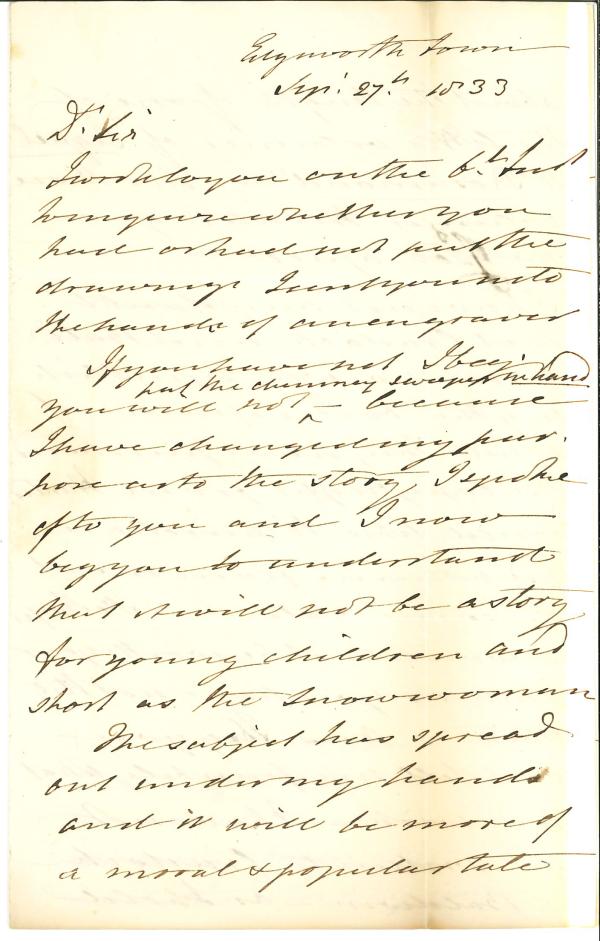 Edgeworth Town
Sepr. 27th. 1833
Dr. Sir
I wrote to you on the 6th. Inst
to inquire whether you
had or had not put the
drawings I sent you into
the hands of an engraver
If you have not I beg
put the chimney sweeper in hand
you will not — because
I have changed my pur-
pose as to the story I spoke
of to you and I now
beg you to understand
that it will not be a story
for young children and
short as the Snow woman
The subject has spread
out under my hands
and it will be more of
a moral & popular tale